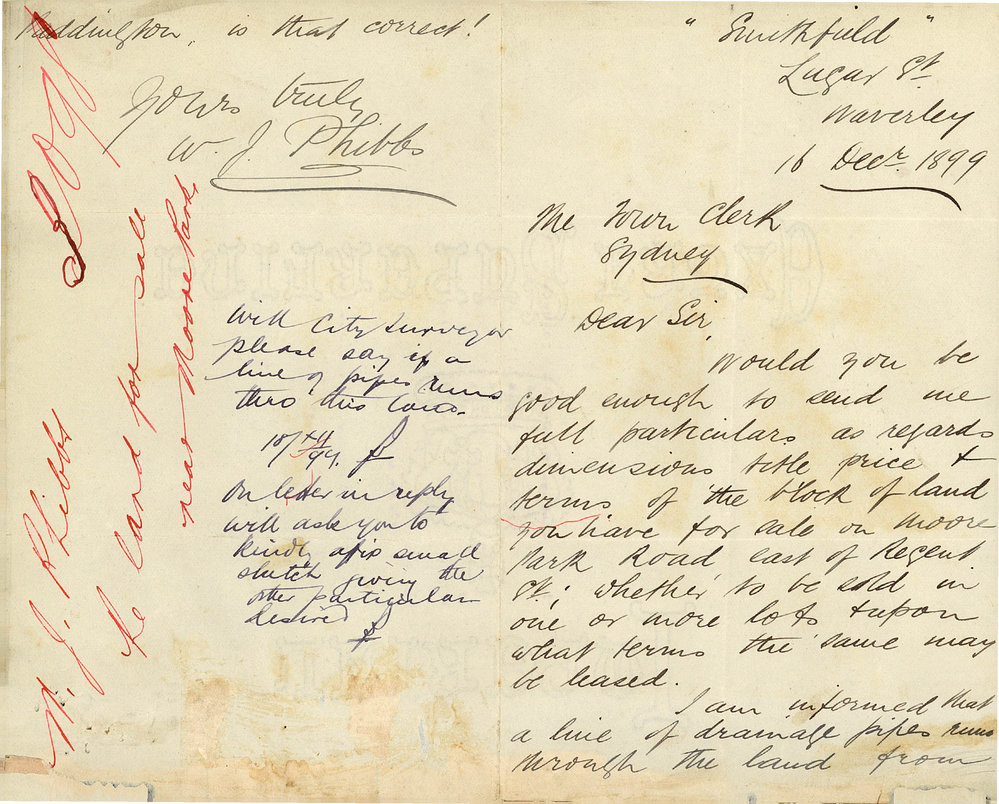 "Smithfield"
Lugar St.
Waverley
16 Decr. 1899
The Town Clerk
Sydney
Dear Sir,
Would you be
good enough to send me
full particulars as regards
dimensions title price &
terms of the block of land
you have for sale on Moore
Park Road east of Regent
St; whether to be sold in
one or more lots & upon
what terms the same may
be leased.
I am informed that
a line of drainage pipes runs
through the land from
Paddington, is that correct!
Yours truly
W. J. Phibbs
Will City Surveyor
please say if a
line of pipes runs
thro this land.
18/
99.
On letter in reply
will ask you to
kindly affix small
sketch giving the
other particulars
desired
W. J. Phibbs
re land for sale
near Moore Park.